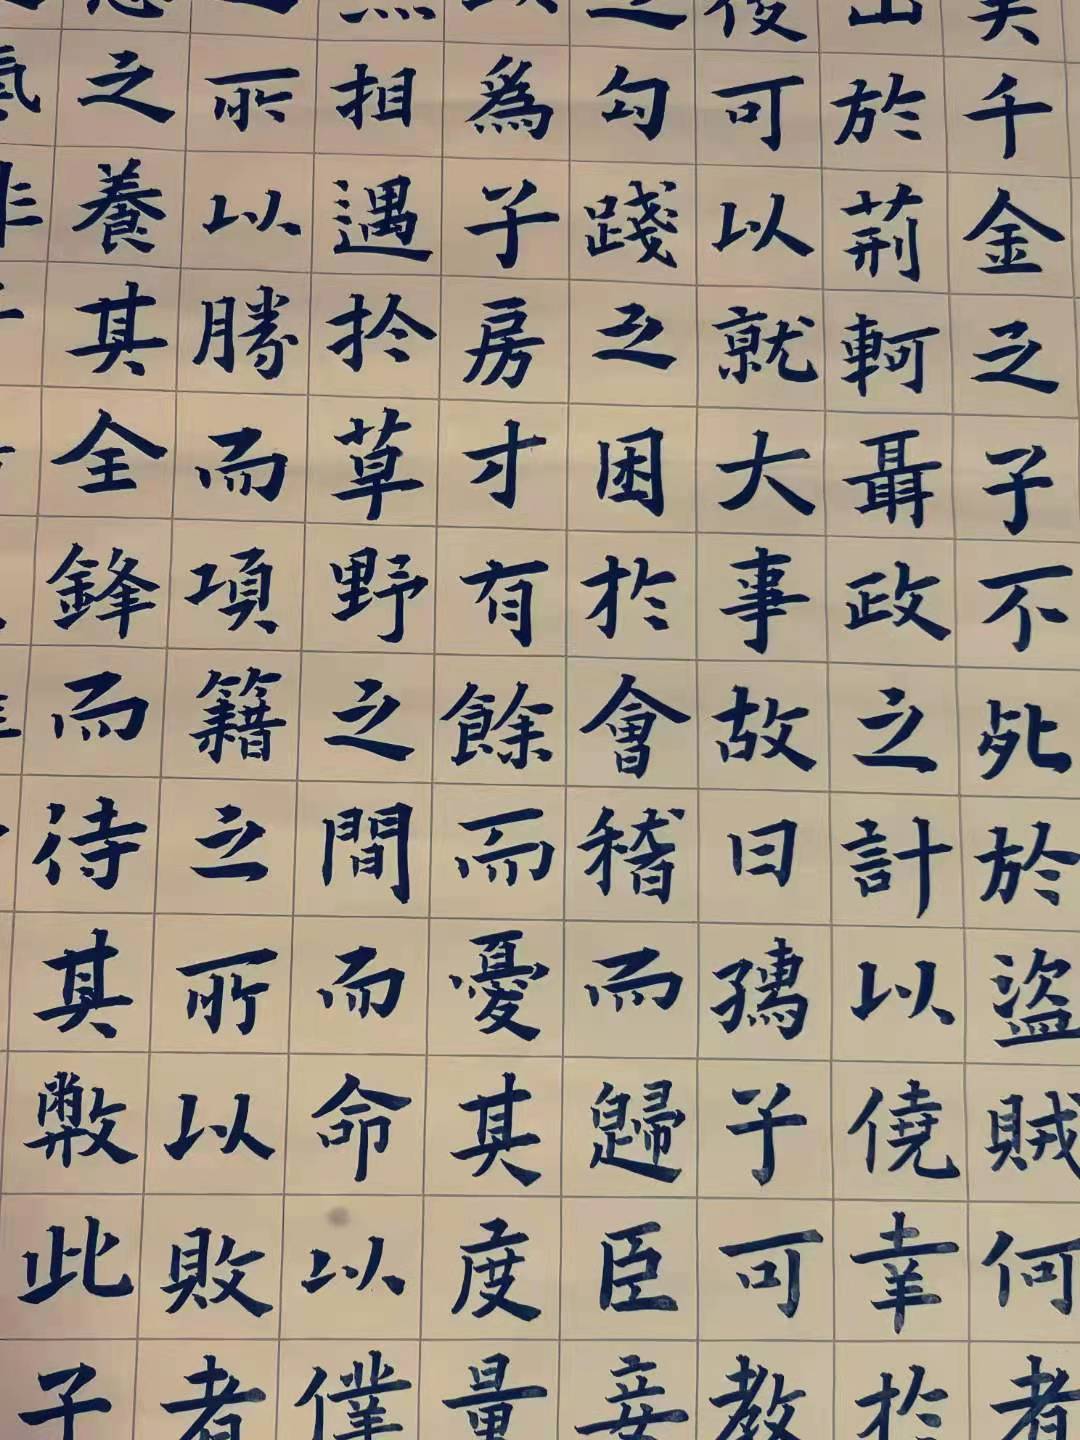 千金之子不死於盜賊何者
出於荊軻聶政之計以僥幸於
後可以就大事故曰孺子可教
之勾踐之困於會稽而歸臣妾
以為子房才有餘而憂其度量
然相遇於草野之間而命以僕
之所以勝而項籍之所以敗者
忍之養其全鋒而待其敝此子